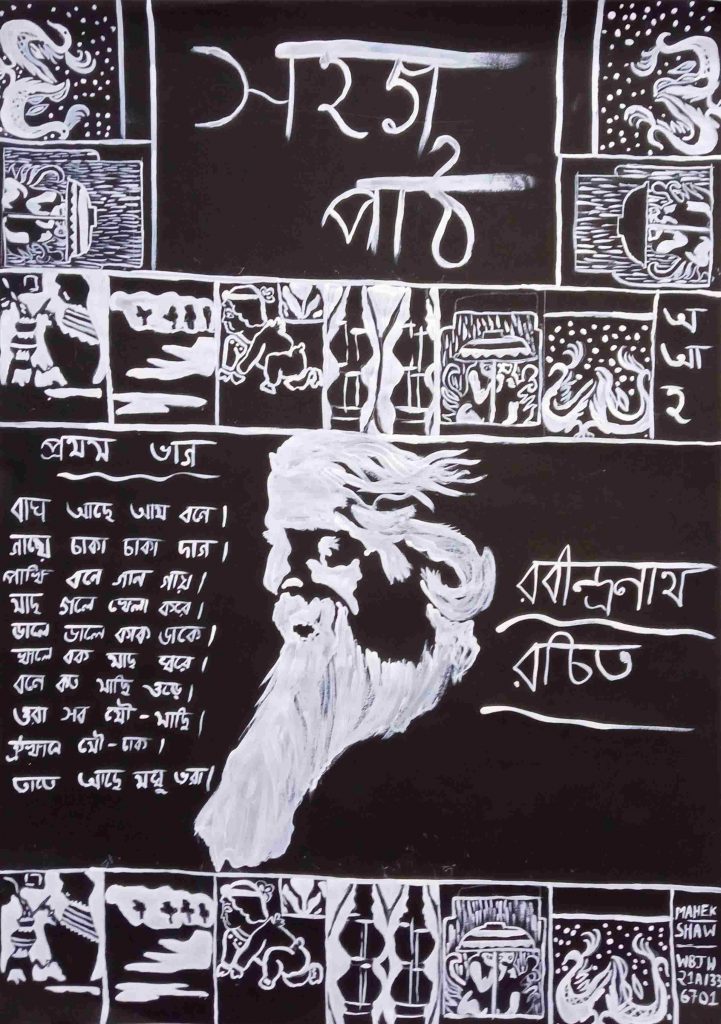 সহজ
পাঠ
প্রথম ভাগ
বাঘ আছে আম বনে।
গায়ে চাকা চাকা দাগ।
পাখি বনে গান গায়।
মাছ জলে খেলা করে।
ডালে ডালে কাক ডাকে।
খালে বক মাছ ধরে।
বনে কত মাছি ওড়ে।
ওরা সব মৌ-মাছি।
ঐখানে মৌ-চাক।
তাতে আছে মধু ভরা।
রবীন্দ্রনাথ
রচিত
MAHEK
SHAW
WBJH
21A133
6701